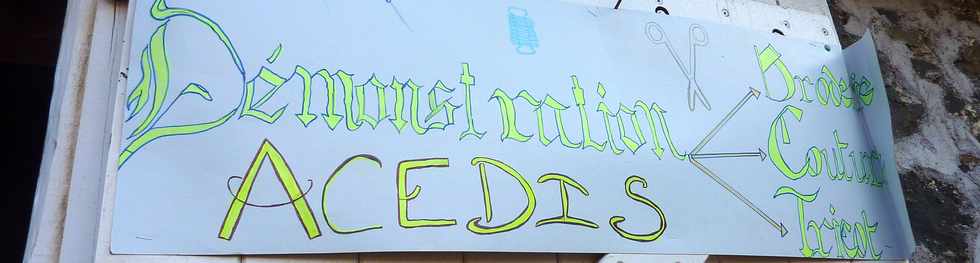 Démonstration
ACEDIS
Broderie
Couture
Tricot